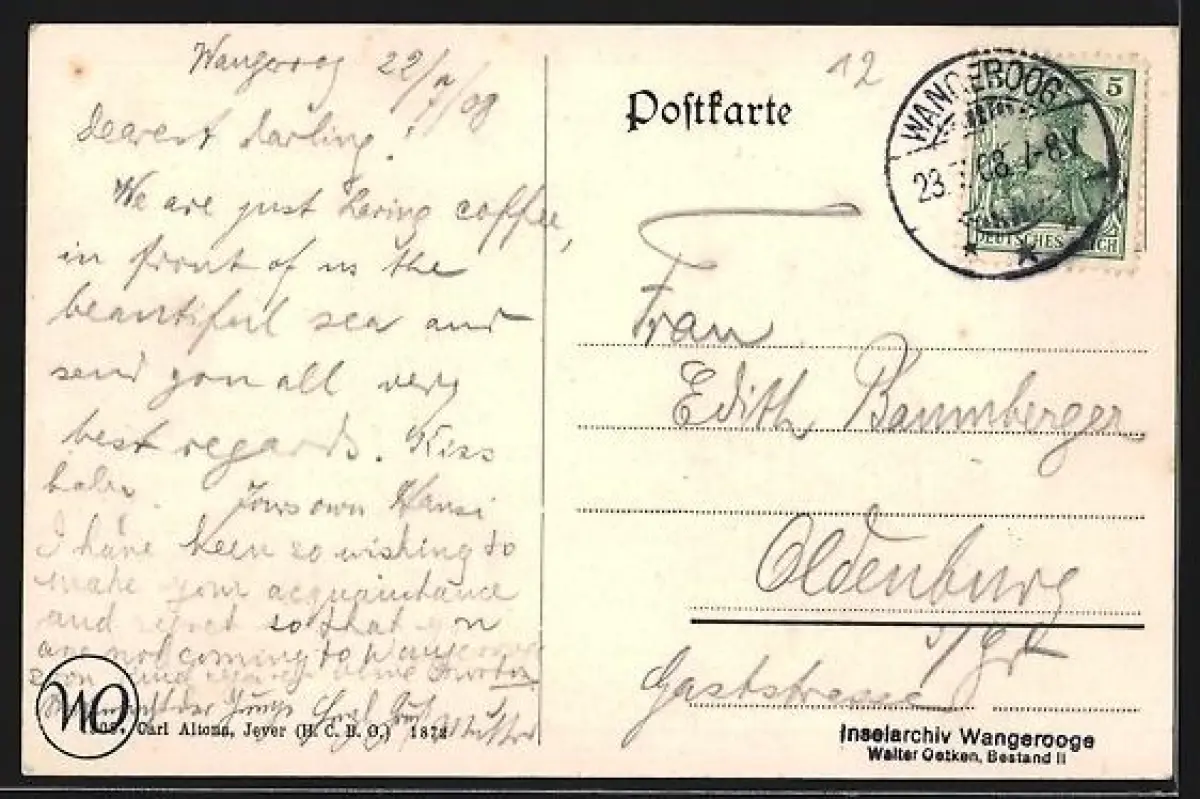 Wangeroog 22/7/08
Dearest darling!
We are just having coffee,
in front of us the
beautiful sea and
send you all very
best regards. Kiss
baby. Yours own Hansi
I have been so wishing to
make your acquaintance
and regret so that you
are not coming to Wangeroog
soon. kind regards
Gruß Mutter
Carl Altona, Jever (H. C. B. O.) 1878
Postkarte
12
WANGEROOG
23. 08. 7-8V
5
DEUTSCHES REICH
Frau
Edith Baumberger
Oldenburg
i/Gr
Gaststrasse
Inselarchiv Wangerooge
Walter Oetken, Bestand II